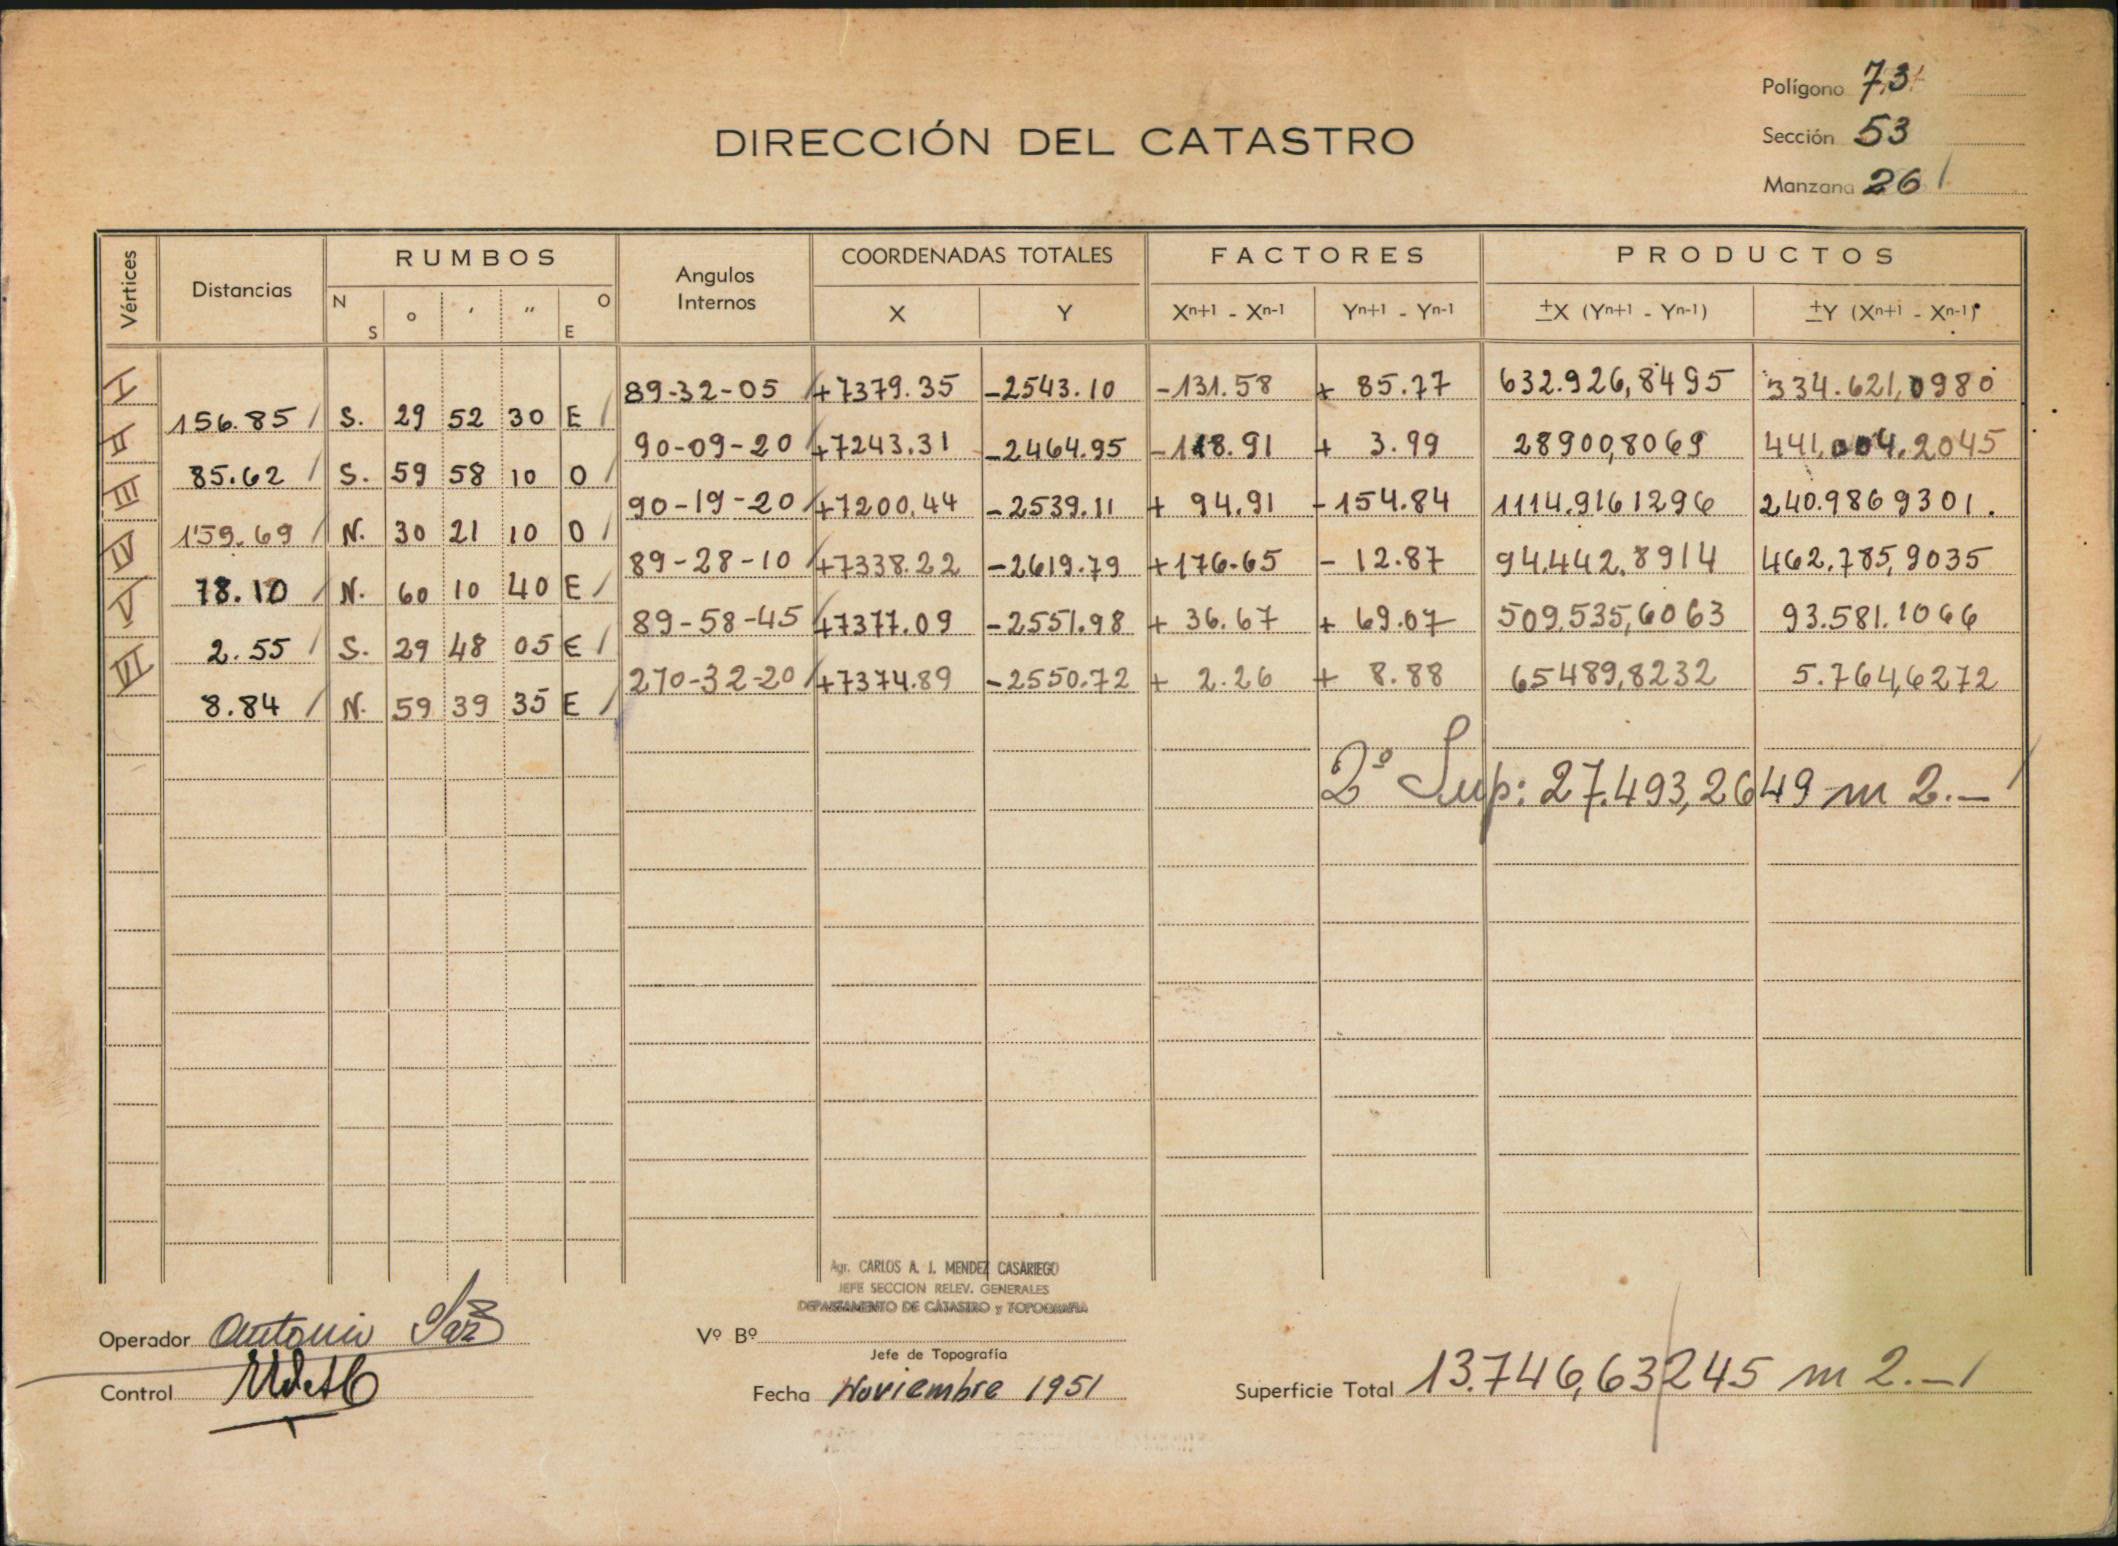 Polígono 73
DIRECCIÓN DEL CATASTRO
Sección 53
Manzana 26
Vértices Distancias RUMBOS Angulos Internos COORDENADAS TOTALES FACTORES PRODUCTOS
N S o ' " O E X Y Xn+1 - Xn-1 Yn+1 - Yn-1 ±X (Yn+1 - Yn-1) ±Y (Xn+1 - Xn-1)
I 89-32-05 +7379.35 -2543.10 -131.58 + 85.77 632.926,8495 334.621,0980
156.85 S. 29 52 30 E
II 90-09-20 +7243.31 -2464.95 -178.91 + 3.99 28900,8069 441.004.2045
85.62 S. 59 58 10 O
III 90-19-20 +7200,44 -2539.11 + 94.91 -154.84 1114.9161296 240.9869301.
159.69 N. 30 21 10 O
IV 89-28-10 +7338.22 -2619.79 +176.65 - 12.87 94.442.8914 462.785,9035
78.10 N. 60 10 40 E
V 89-58-45 +7377.09 -2551.98 + 36.67 + 69.07 509.535,6063 93.581.1066
2.55 S. 29 48 05 E
VI 270-32-20 +7374.89 -2550.72 + 2.26 + 8.88 65489,8232 5.764,6272
8.84 N. 59 39 35 E
2º Sup: 27.493,2649 m 2.-
Agr. CARLOS A. J. MENDEZ CASARIEGO
JEFE SECCION RELEV. GENERALES
DEPARTAMENTO DE CATASTRO y TOPOGRAFIA
Operador Antonio
Vº Bº
Jefe de Topografía
Control
Fecha Noviembre 1951
Superficie Total 13.746,63245 m 2.-